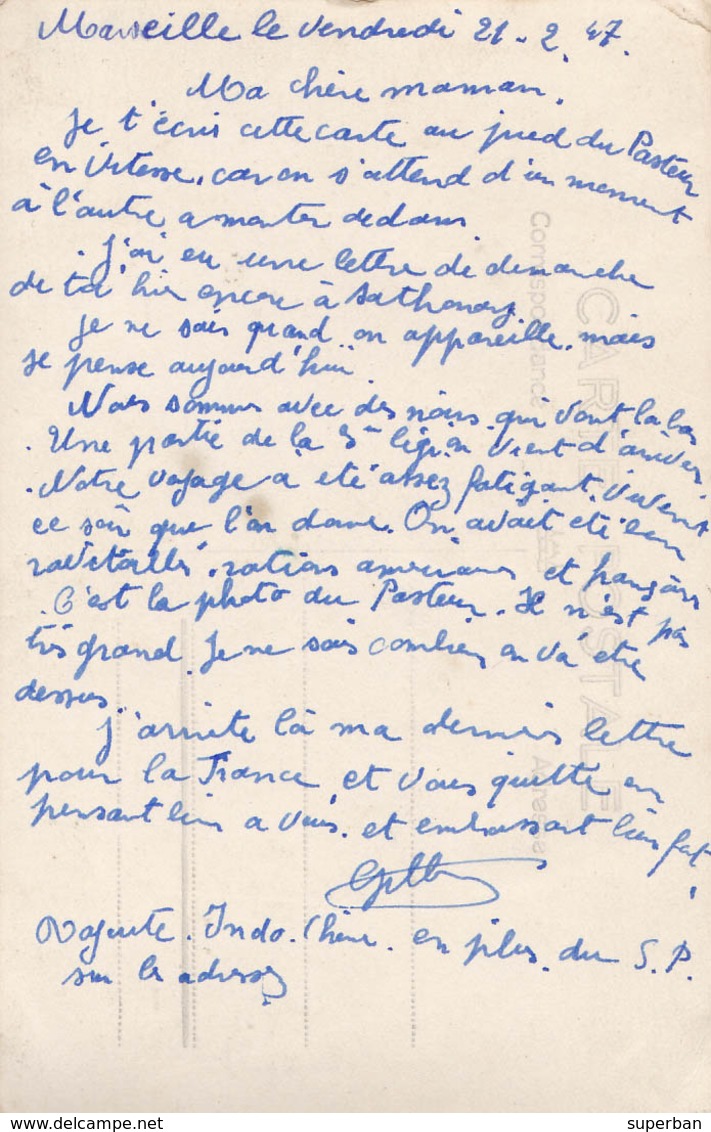 Marseille le vendredi 21-2.47.
Ma chère maman.
Je t'écris cette carte au pied du Pasteur
en vitesse, car on s'attend d'un moment
à l'autre a monter dedans.
. J'ai eu une lettre de dimanche
de toi hier encore à Sathonay.
Je ne sais quand on appareille. mais
je pense aujourd'hui.
Nous sommes avec des noirs qui vont la bas
. Une partie de la 3me légion vient d'arriver
. Notre voyage a été assez fatigant. Vivement
ce soir que l'on dorme. On avait été bien
ravitaillé, rations américaines et françaises
. C'est la photo du Pasteur. Il n'est pas
très grand. Je ne sais combien on va être
dessus.
J'arrête là ma dernière lettre
pour la France et vous quitte en
pensant bien a vous. et embrassant bien fort
Rajoute. Indo. Chine. en plus. du S.P.
sur les adresses
CARTE POSTALE
Correspondance
Adresse
superban